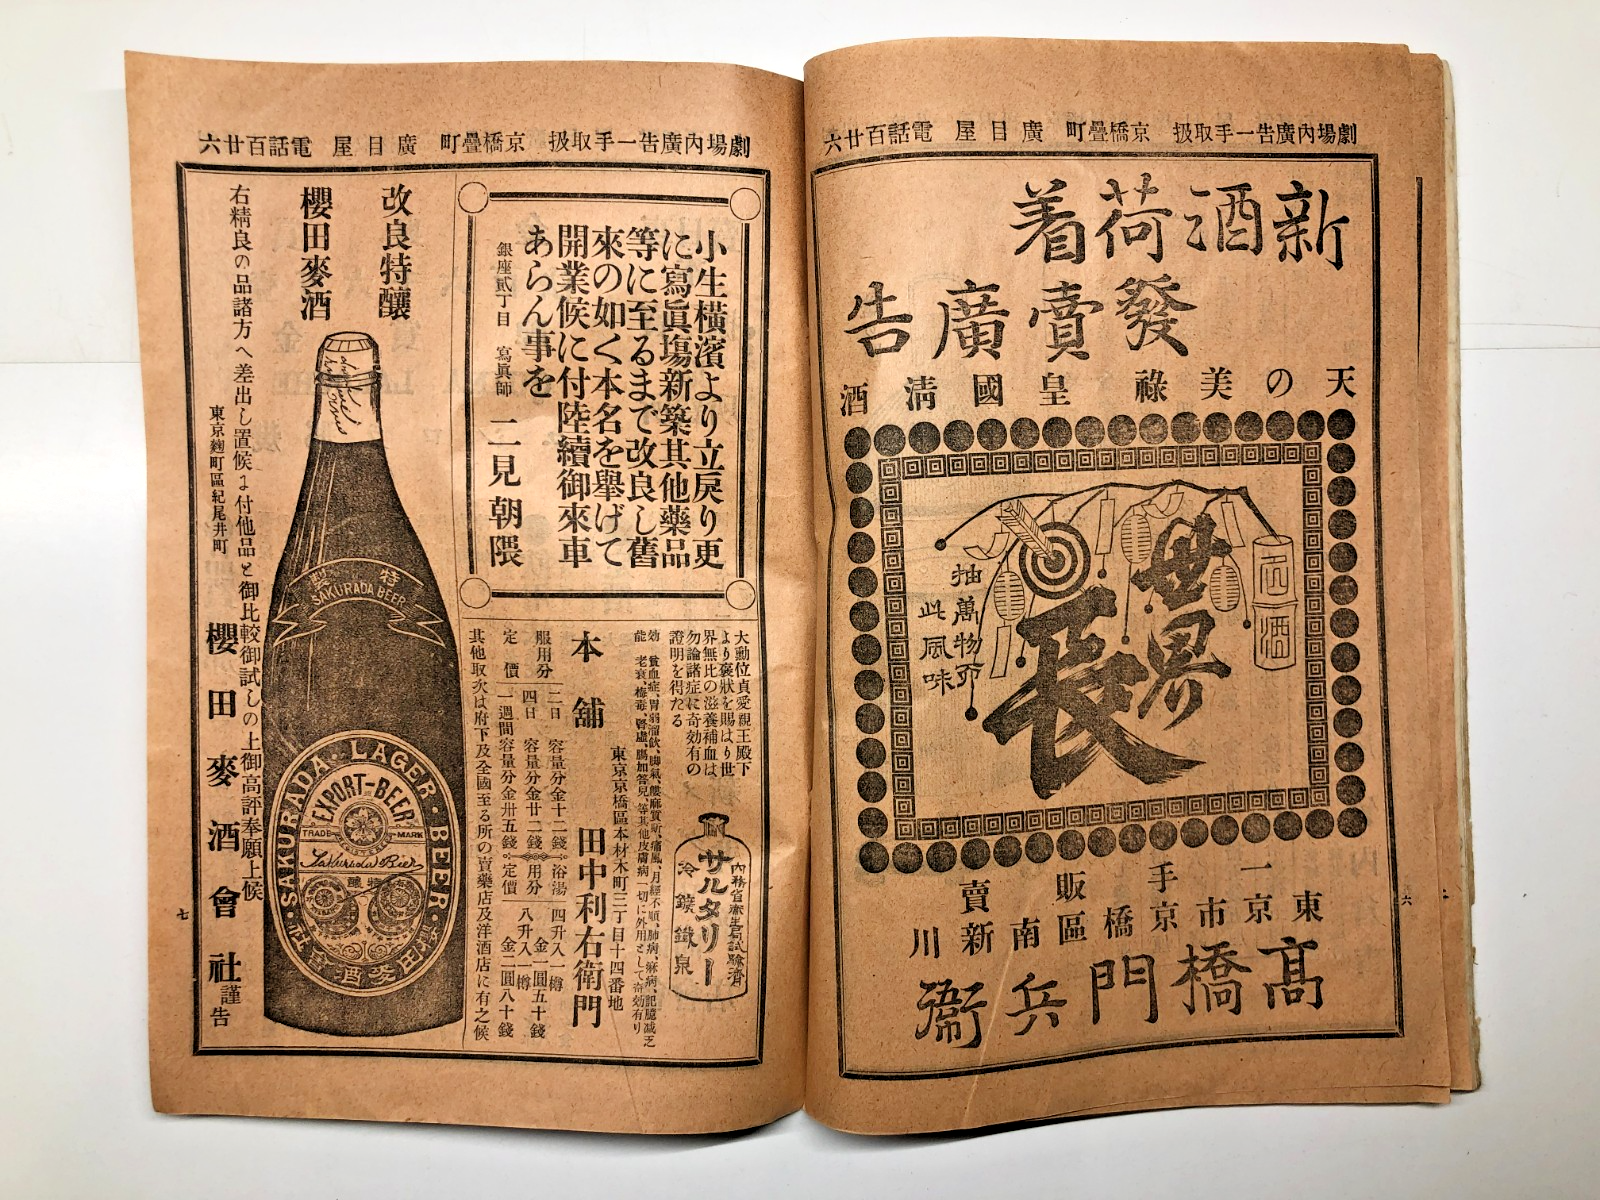 劇場内廣告一手取扱 京橋疊町 廣目屋 電話百廿六
新酒荷着
發賣廣告
天の美祿 皇國淸酒
世界
長
抽萬物而
此風味
一手販賣
東京市京橋區南新川
髙橋門兵衞
六
劇場内廣告一手取扱 京橋疊町 廣目屋 電話百廿六
小生横濱より立戻り更
に寫眞塲新築其他藥品
等に至るまで改良し舊
來の如く本名を擧げて
開業候に付陸續御來車
あらん事を
銀座貳丁目 寫眞師 二見朝隈
大勳位貞愛親王殿下
より褒狀を賜はり世
界無比の滋養補血は
勿論諸症に奇効有の
證明を得たる
内務省衞生局試驗濟
サルタリー
冷鑛鐵泉
効能
本舖
東京京橋區本材木町三丁目十四番地
田中利右衛門
服用分 二日 容量分金十二錢
四日 容量分金廿二錢
定價 一週間容量分金卅五錢
浴湯用分 四升入一樽 金一圓五十錢
定價 八升入一樽 金二圓八十錢
其他取次は府下及全國至る所の賣藥店及洋酒店に有之候
改良特釀
櫻田麥酒
特製
SAKURADA BEER
SAKURADA · LAGER · BEER
EXPORT-BEER
TRADE MARK
Sakurada Bier
特釀
櫻田麥酒會社
右精良の品諸方へ差出し置候に付他品と御比較御試しの上御高評奉願上候
東京麹町區紀尾井町
櫻田麥酒會社
謹告
七